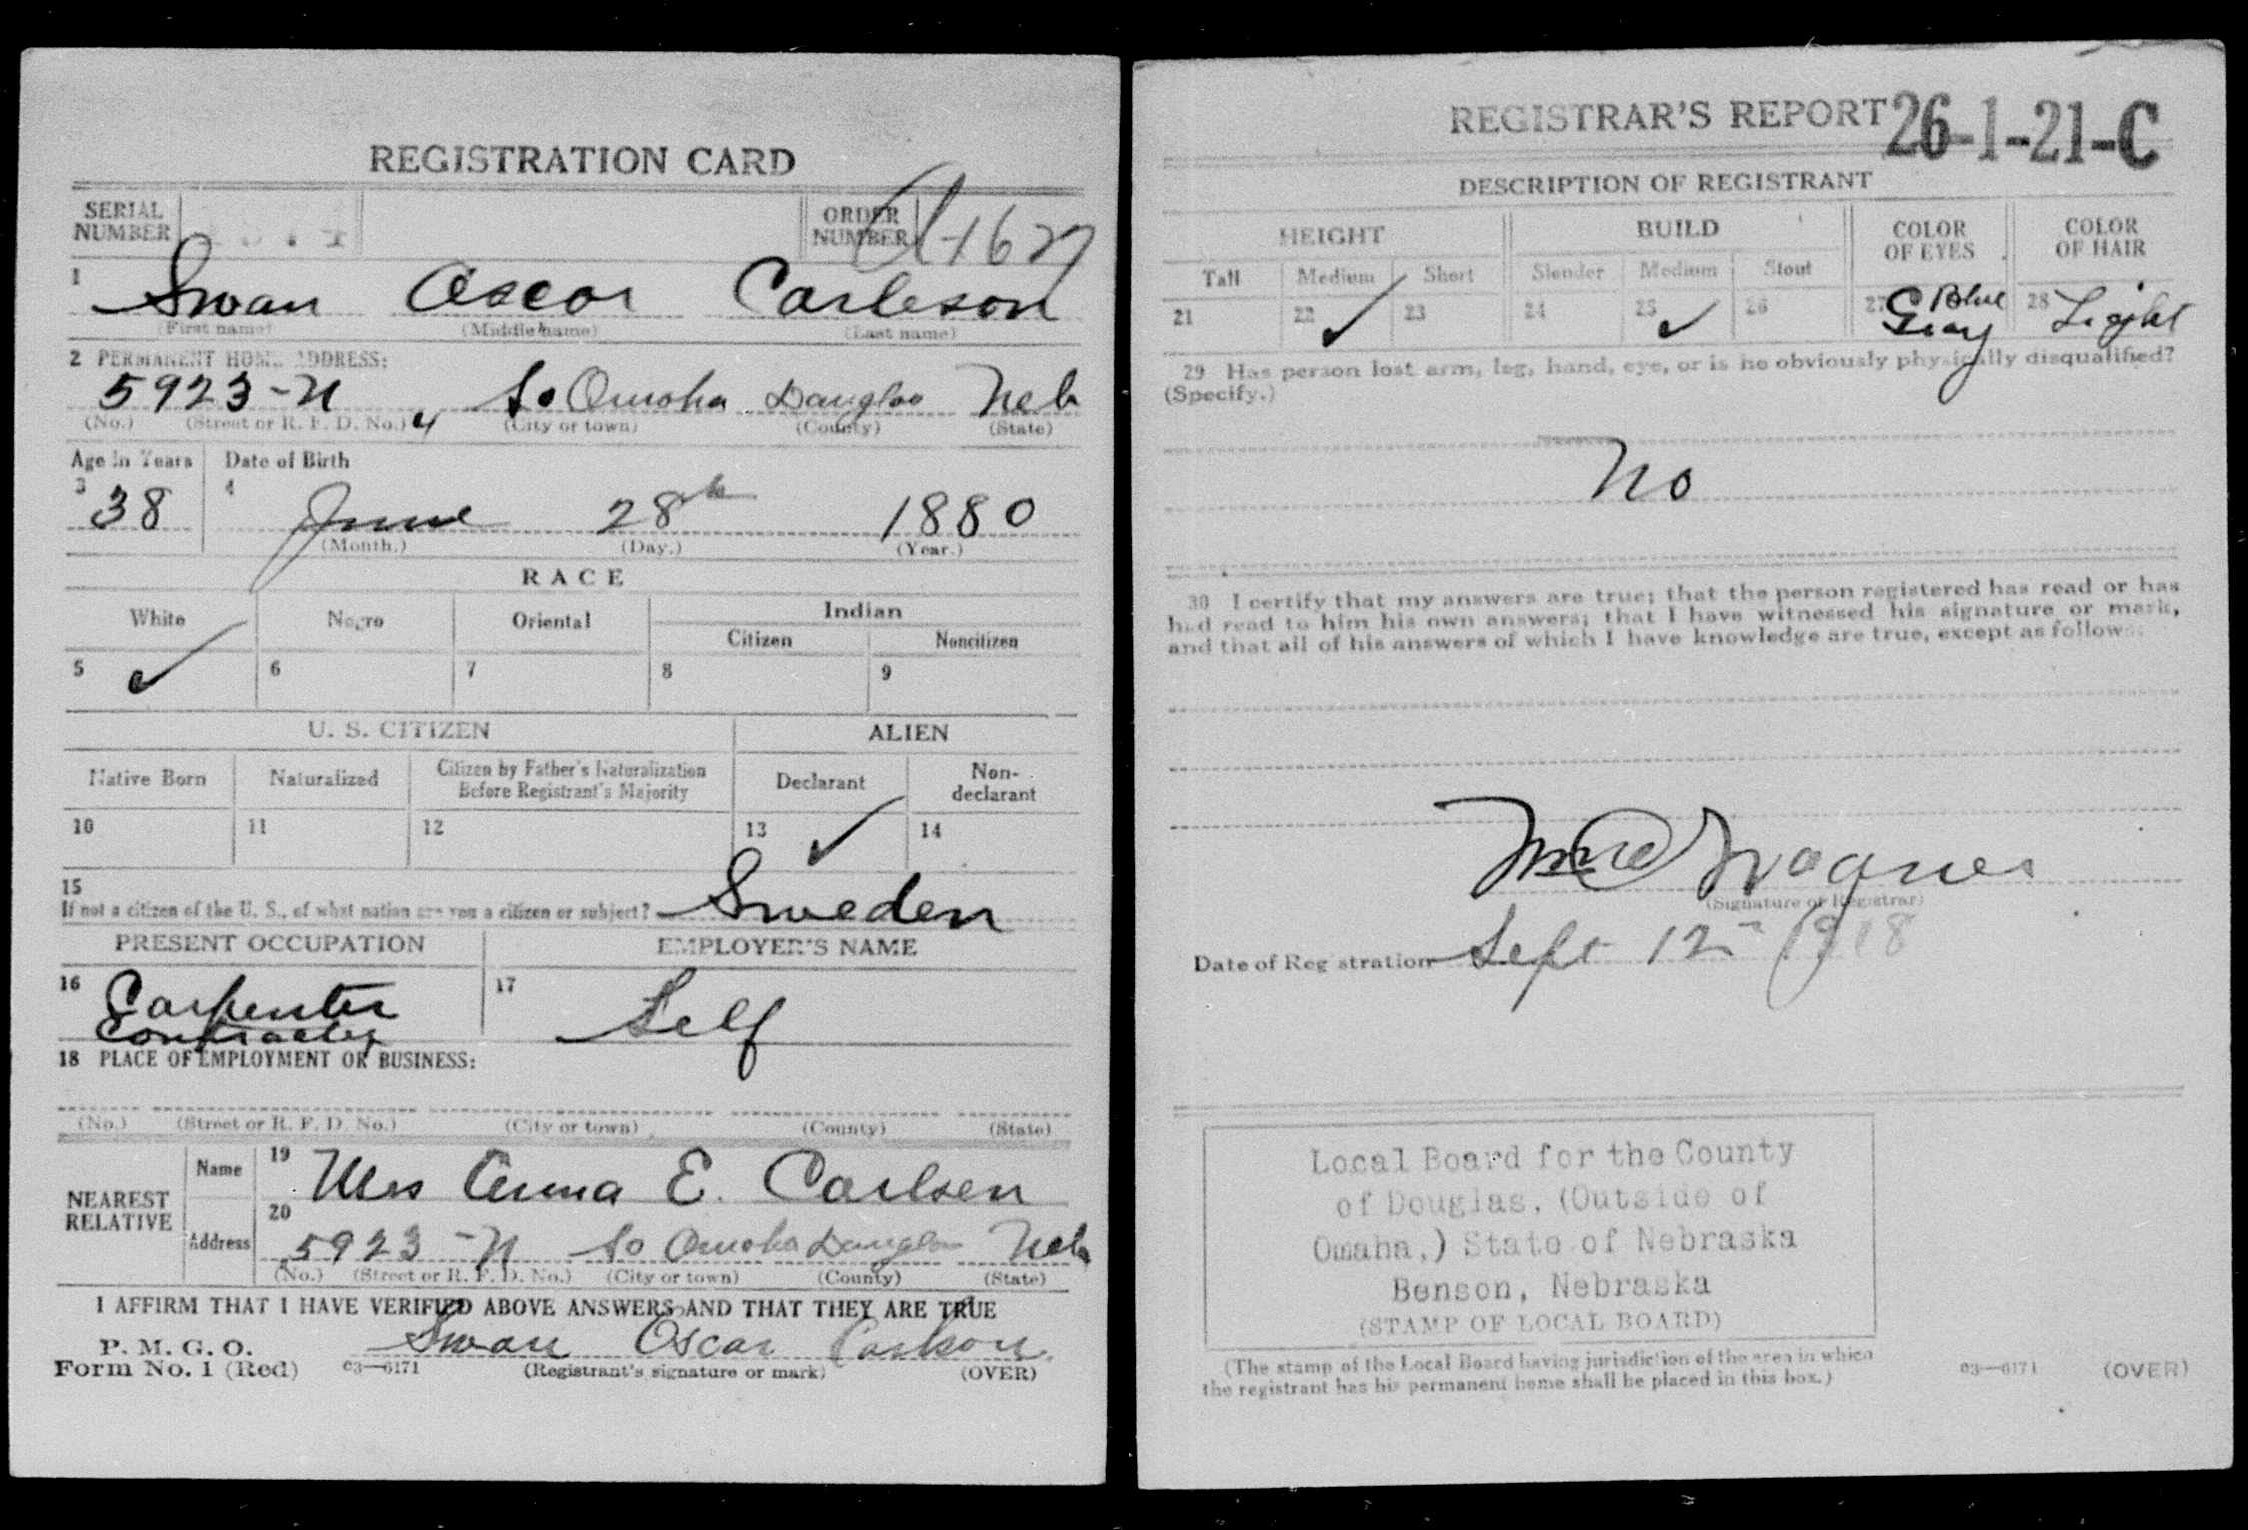 REGISTRATION CARD
SERIAL NUMBER
ORDER NUMBER A1627
1 Swan Oscar Carleson
(First name) (Middle name) (Last name)
2 PERMANENT HOME ADDRESS:
5923-N So Omaha Douglas Neb
(No.) (Street or R. F. D. No.) 4 (City or town) (County) (State)
Age in Years Date of Birth
3 38 4 June 28th 1880
(Month.) (Day.) (Year.)
RACE
White Negro Oriental Indian
Citizen Noncitizen
5 ✓ 6 7 8 9
U. S. CITIZEN ALIEN
Native Born Naturalized Citizen by Father's Naturalization Before Registrant's Majority Declarant Non-declarant
10 11 12 13 ✓ 14
15
If not a citizen of the U. S., of what nation are you a citizen or subject? Sweden
PRESENT OCCUPATION EMPLOYER'S NAME
16 Carpenter 17 Self
Contractor
18 PLACE OF EMPLOYMENT OR BUSINESS:
(No.) (Street or R. F. D. No.) (City or town) (County) (State)
NEAREST RELATIVE
Name 19 Mrs Anna E. Carlsen
Address 20 5923-N So Omaha Douglas Neb
(No.) (Street or R. F. D. No.) (City or town) (County) (State)
I AFFIRM THAT I HAVE VERIFIED ABOVE ANSWERS AND THAT THEY ARE TRUE
P. M. G. O.
Form No. 1 (Red) 03—6171 Swan Oscar Carlson
(Registrant's signature or mark) (OVER)
REGISTRAR'S REPORT 26-1-21-C
DESCRIPTION OF REGISTRANT
HEIGHT BUILD COLOR OF EYES COLOR OF HAIR
Tall Medium Short Slender Medium Stout
21 22 ✓ 23 24 25 ✓ 26 27 Blue Gray 28 Light
29 Has person lost arm, leg, hand, eye, or is he obviously physically disqualified?
(Specify.)
No
30 I certify that my answers are true; that the person registered has read or has
had read to him his own answers; that I have witnessed his signature or mark,
and that all of his answers of which I have knowledge are true, except as follows:
Wagner
(Signature of Registrar)
Date of Registration Sept 12 1918
Local Board for the County
of Douglas, (Outside of
Omaha,) State of Nebraska
Benson, Nebraska
(STAMP OF LOCAL BOARD)
(The stamp of the Local Board having jurisdiction of the area in which
the registrant has his permanent home shall be placed in this box.)
03—6171 (OVER)